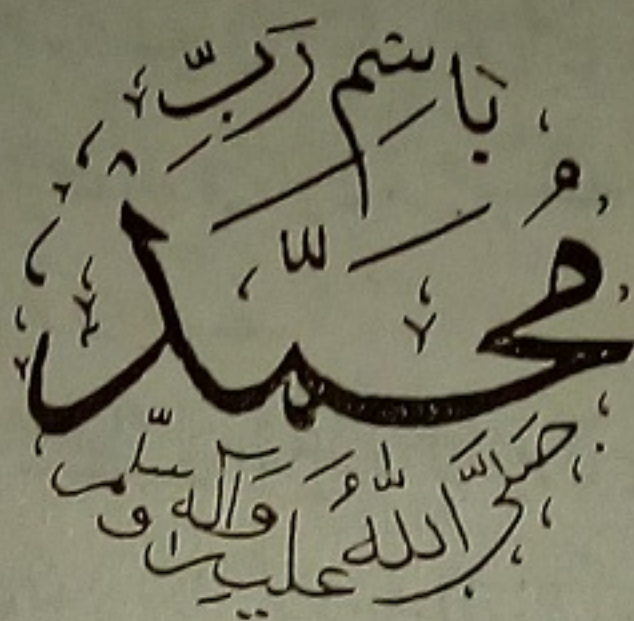 بَاسِمِ رَبِّ
مُحَمَّد
صَلَّى اللّٰهُ عليه وَآله وسلّم